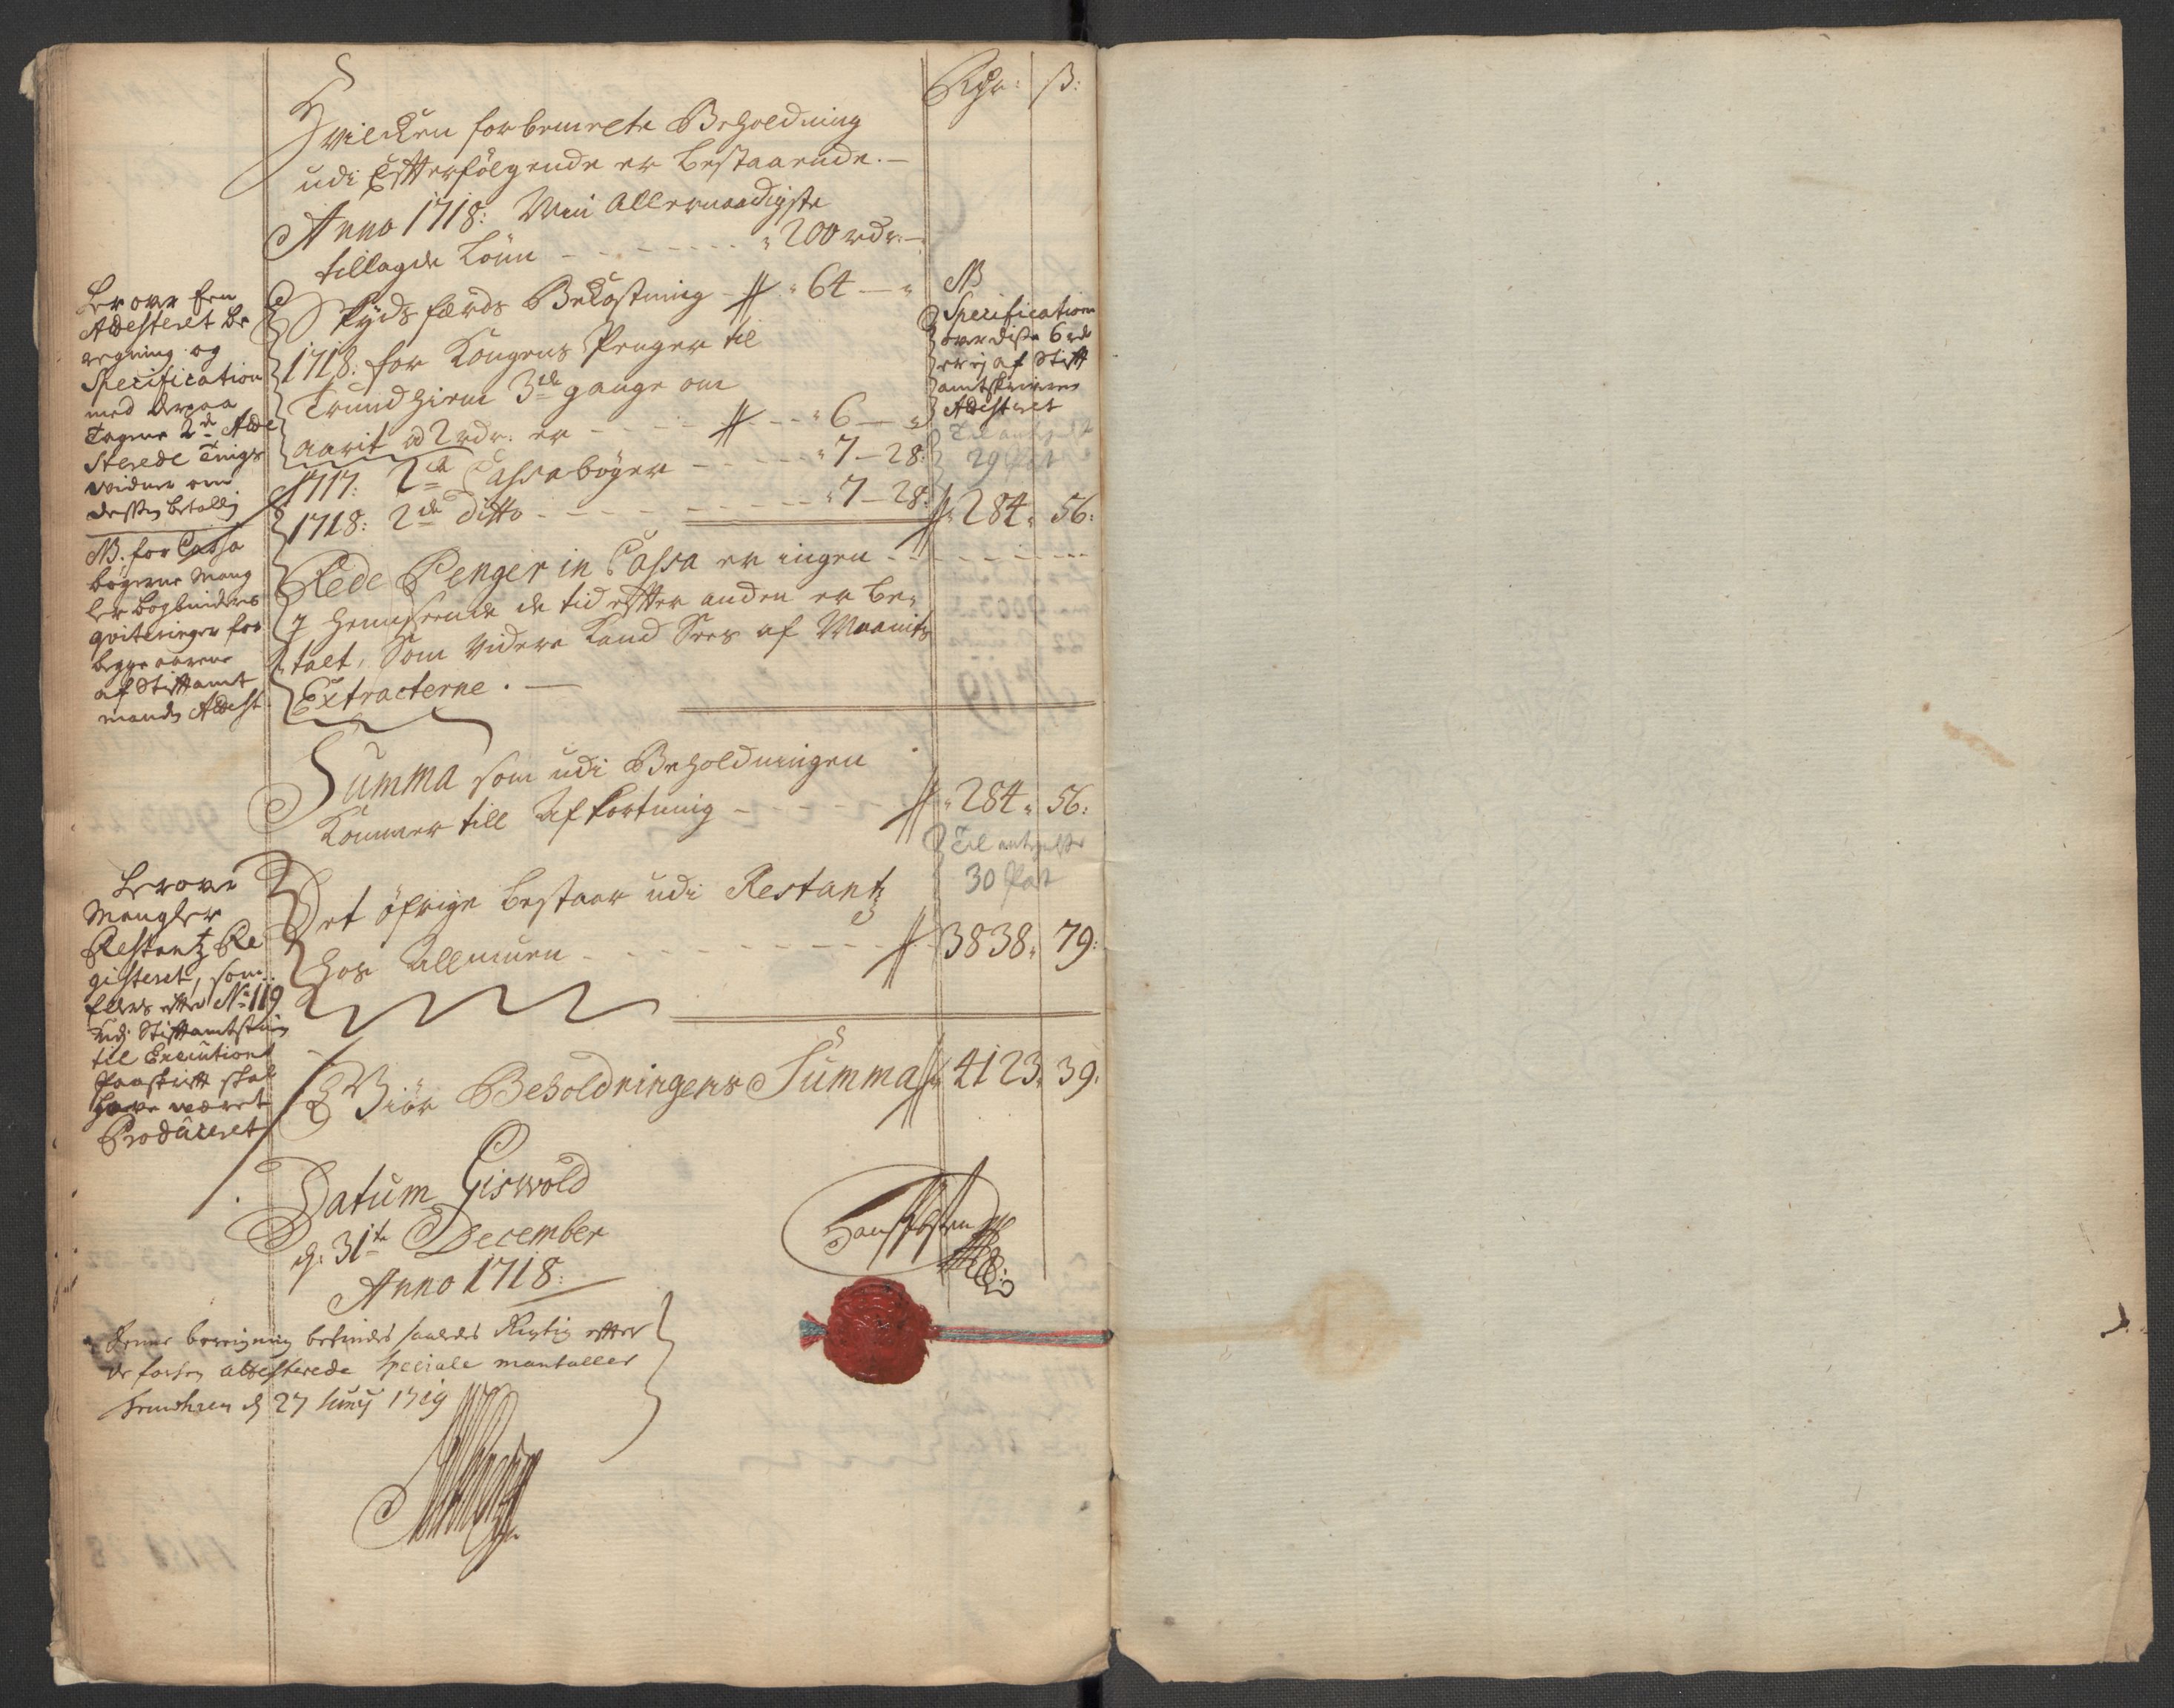 Rdr: ß:
Hvilcken forbemelte Beholdning
udi Efterfölgende er bestaaende.—
Anno 1718: Min Allernaadigste
tillagde Lönn - - - " 200 rdr:—
Skydsferds Bekostning - " 64 — "
1718: for Kongens Penger til
Trundhiem 3de gange om
aarit â 2 rdr: er - - - " 6 — "
1717: 2de Cassabøger - - - " 7 — 28:
1718: 2de ditto - - - " 7 — 28:
" 284 " 56:
Rede Penger in Cassa er ingen - - -
hemsende de tid efter anden er be-
talt, Som videre kand Sees af Maanits
Extracterne . —
Summa som udi Beholdningen
kommer till Afkortning - - - " 284 " 56:
Det öfrige bestaar udi Restantz
hos Allmuen - - - 3838 " 79:
Giör Beholdningens Summa 4123 " 39:
Datum Giswold
d: 31te December
Anno 1718:
herover een
Attesteret be
regning og
Specification
med derpaa
tagne 2de Atte
sterede tings
widner om
dessen betaling
NB: for Cassa
bøgerne Mang
ler bogbinderes
qviteringer for
begge aarene
af Stiftamt
mands Attest
NB
Specification
over disse 6 rdr
er ej af Stift
amtskriveren
Attesteret
Til antegnelse
29 Post
Til antegnelse
30 Post
herover
Mangler
Restantz Re
gisteret, som
ellers efter No 119
til Execution
Paaskrift skal
have været
Produceret
Denne beregning befindes saaledes Rigtig efter
de forhen attesterede speciale mantaller
Trundhiem d 27 Junij 1719